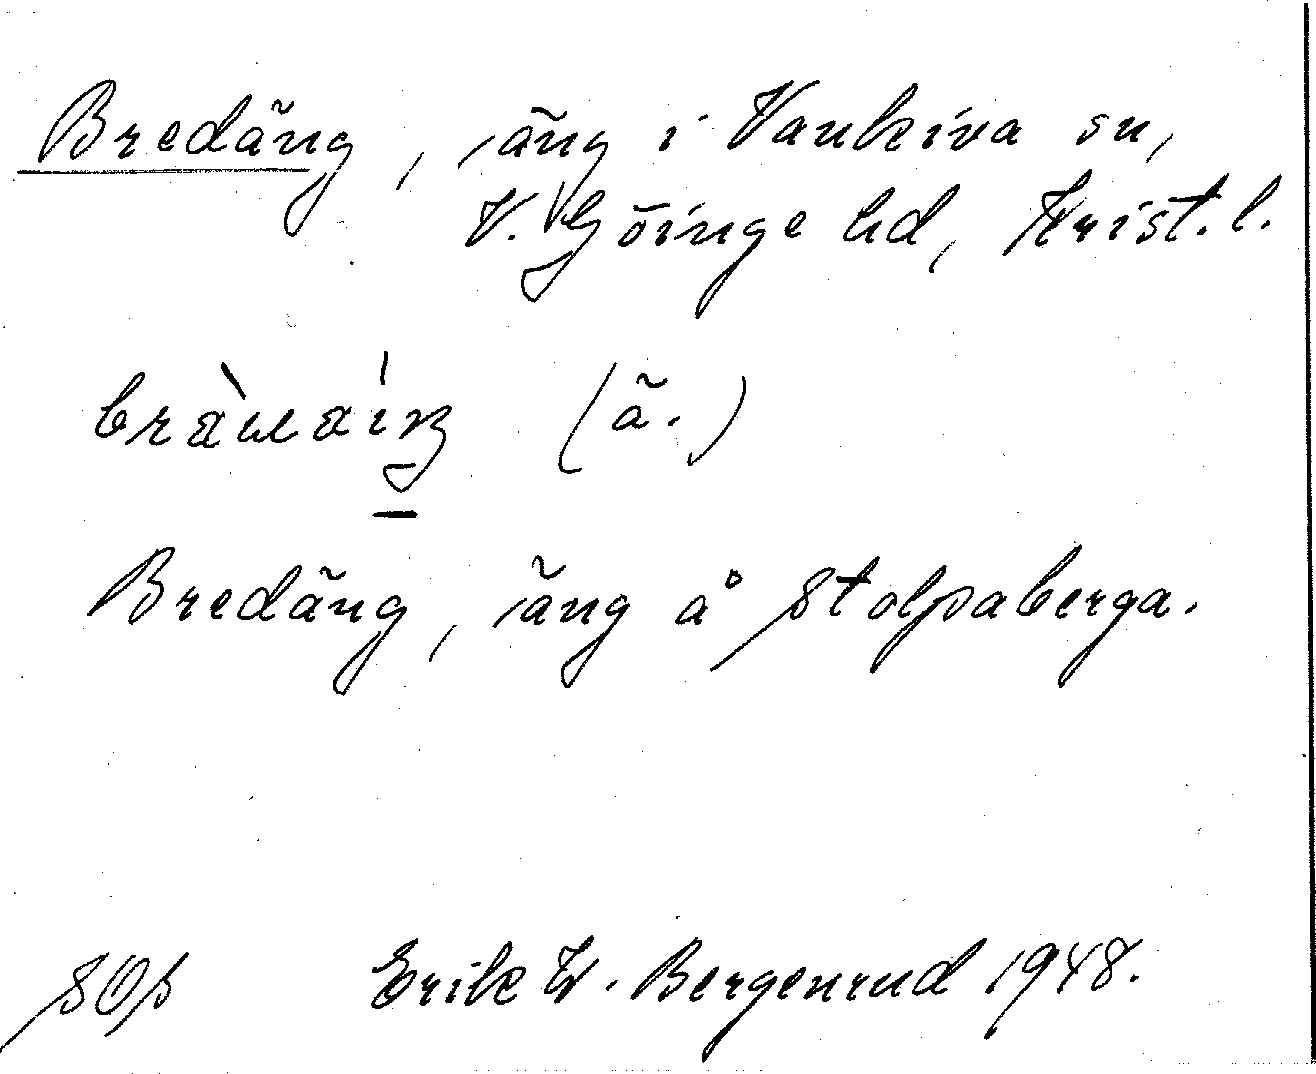 Bredäng, äng i Vankiva sn,
V. Göinge hd, Krist. l.
(ä.)
Bredäng, äng å Stolpaberga.
Erik W. Bergenrud 1948.